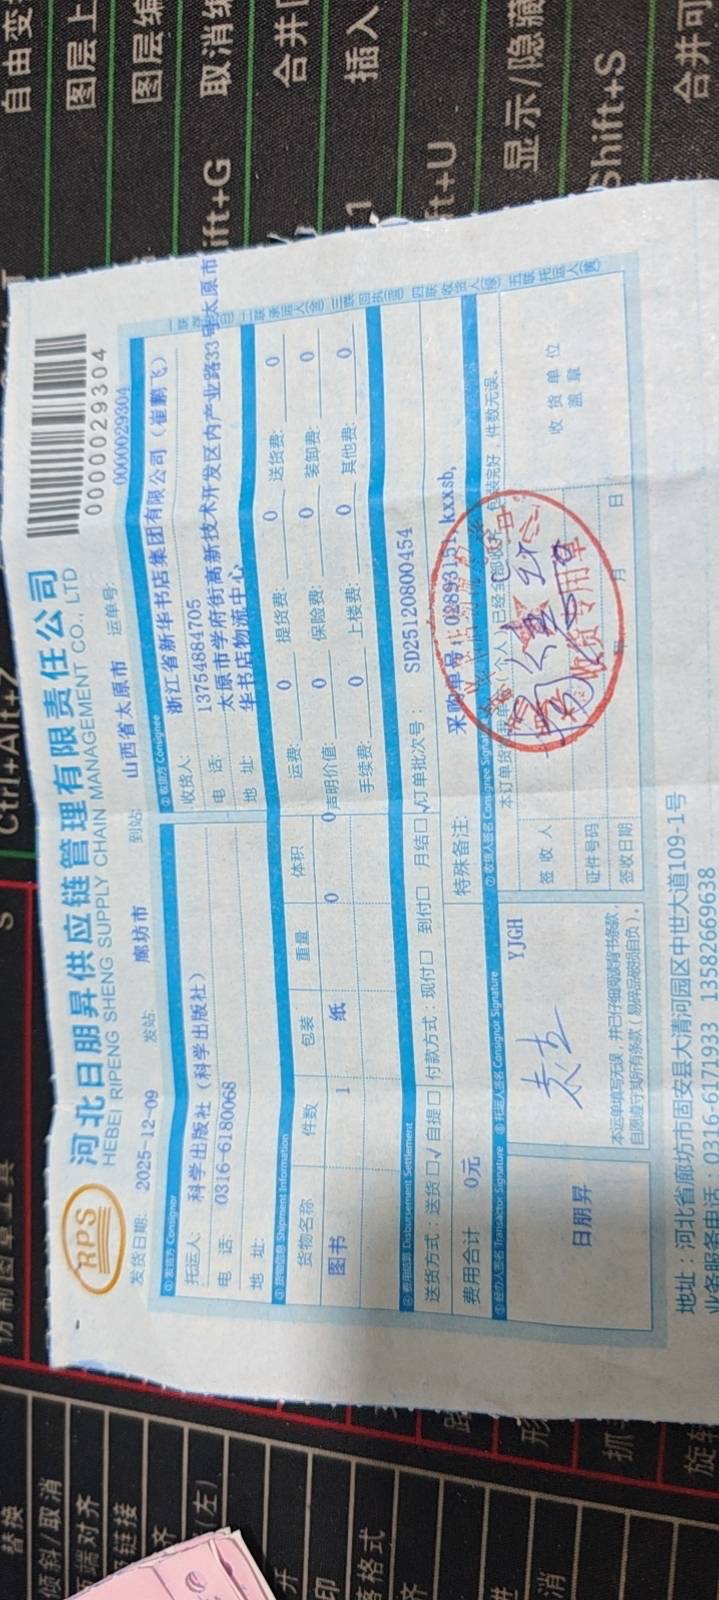 RPS
河北日朋昇供应链管理有限责任公司
HEBEI RIPENG SHENG SUPPLY CHAIN MANAGEMENT CO., LTD
0000029304
发货日期: 2025-12-09 发站: 廊坊市 到站: 山西省太原市 运单号: 0000029304
①发货方 Consignor
托运人: 科学出版社 (科学出版社)
电 话: 0316-6180068
地 址:
②收货方 Consignee
收货人: 浙江省新华书店集团有限公司 (崔鹏飞)
电 话: 13754884705
地 址: 太原市学府街高新技术开发区内产业路33号太原市
华书店物流中心
③货物信息 Shipment Information
货物名称 件数 包装 重量 体积
图书 1 纸 0 0
运费: 0 提货费: 0 送货费: 0
声明价值: 0 保险费: 0 装卸费: 0
手续费: 0 上楼费: 0 其他费: 0
④费用结算 Disbursement Settlement
送货方式: 送货□√ 自提□ 付款方式: 现付□ 到付□ 月结□√ 订单批次号: SD25120800454
费用合计 0元
特殊备注: 采购单号: kxxsb,
⑤经办人签名 Transactor Signature
日朋昇
⑥托运人签名 Consignor Signature
YJGH
本运单填写无误,并已仔细阅读背书条款,
自愿遵守其所有条款(易碎品破损自负)。
⑦收货人签名 Consignee Signature
本订单货物 (个人) 已经全部收到 包装完好,件数无误。
签收人
证件号码
签收日期 年 月 日
收货单位
盖章
收货专用章
地址:河北省廊坊市固安县大清河园区中世大道109-1号
业务服务电话:0316-6171933 13582669638
自由变
图层上
图层编
取消编
合并
插入
显示/隐藏
合并可
Shift+S
ift+G
ft+U
Ctrl+Alt+Z
S
替换
倾斜/取消
端对齐
链接
齐
(左)
开
印
落格式
齐
消
旋转